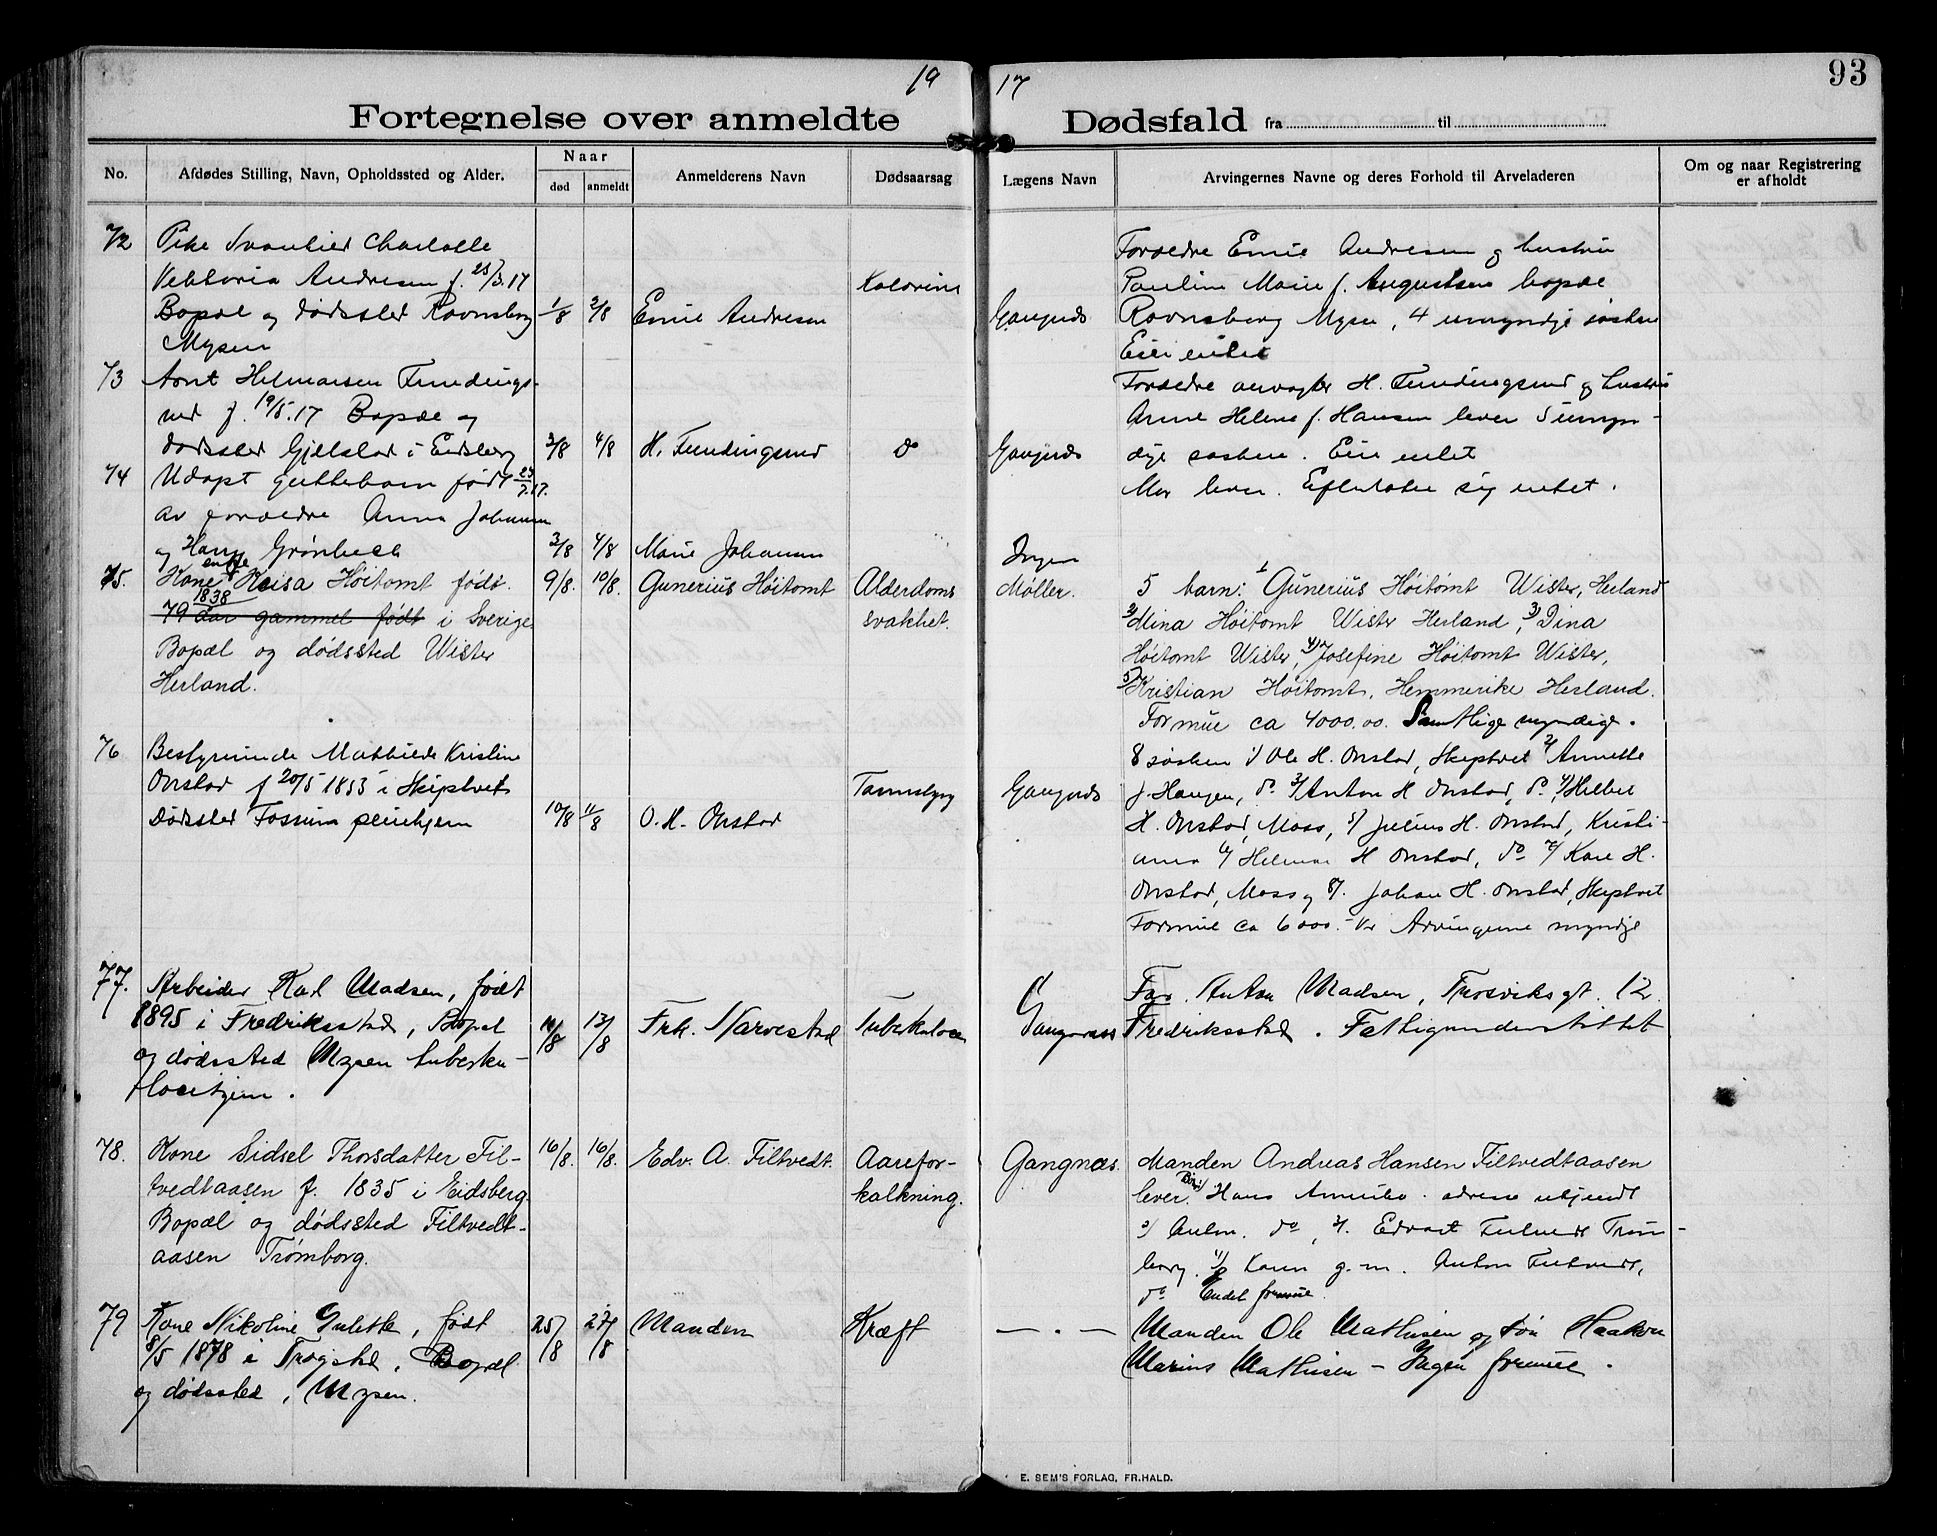 19 17
93
Fortegnelse over anmeldte Dødsfald fra til
No.
Afdødes Stilling, Navn, Opholdssted og Alder.
Naar
død
anmeldt
Anmelderens Navn
Dødsaarsag
Lægens Navn
Arvingernes Navne og deres Forhold til Arveladeren
Om og naar Registrering
er afholdt
72
Pike Charlotte
Andresen f. 25/3.17
Bopæl og dødssted Ravnsborg
Mysen
1/8
2/8
Emil Andresen
Kolorine
Gangnæs
Forældre Emil Andresen og hustru
Pauline Marie f. Augustsen bopæl
Ravnsborg Mysen, 4 umyndige søsken
Eier intet
73
Arnt Helmersen Fundings-
rud f. 19/5.17 Bopæl og
dødssted Gjellestad i Eidsberg
3/8
4/8
H. Fundingsrud
do
Gangnæs
Forældre H. Fundingsrud og hustru
Anne Helene f. Hansen lever 5 umyn-
dige søsken. Eier intet
74
Udøpt guttebarn født 23/7.17.
av forældre Anna Johansen
og Hans Grønbech
3/8
4/8
Marie Johansen
Ingen
Mor lever. Efterlater sig intet.
75.
Kone enke Kaisa Høitomt født.
1838
79 aar gammel født i Sverige
Bopæl og dødssted Wister
Herland.
9/8.
10/8.
Gunerius Høitomt
Alderdoms
svakhet.
Møller.
5 barn: 1 Gunerius Høitomt Wister, Herland
2/ Mina Høitomt Wister Herland, 3) Dina
Høitomt Wister, 4) Josefine Høitomt Wister,
5) Kristian Høitomt, Hemmerike Herland.
Formue ca 4000.00. Samtlige myndige.
76
Bestyrerinde Mathilde Kristine
Onstad f 20/5 1853 i Skiptvet
Dødssted Fossum pleiehjem
10/8
11/8
O. H. Onstad
Gangnæs
8 søsken 1/ Ole H. Onstad, Skiptvet 2/ Annette
f. Haugen, do. 3/ Anton H Onstad, do. 4/
H. Onstad, Moss, 5/ Julius H. Onstad, Kristi-
ania 6/ Helmer H Onstad, do 7/ Kare H.
Onstad, Moss og 8/. Johan H. Onstad, Skiptvet
Formue ca 6000.- kr Arvingerne myndige
77.
Arbeider Karl Madsen, født
1895 i Fredriksstad, Bopæl
og dødssted Mysen tuberku-
losehjem.
11/8
13/8
Frk. Narvestad
Tuberkulose
Gangnæss
Far. Anton Madsen, Trosviksgt. 12.
Fredriksstad. Fattigunderstøttet
78.
Kone Sidsel Thorsdatter Fil-
tvedtaasen f. 1835 i Eidsberg.
Bopæl og dødssted Filtvedt-
aasen Trømborg.
16/8.
16/8.
Edv. A. Filtvedt.
Aarefor-
kalkning.
Gangnæs.
Manden Andreas Hansen Filtvedtaasen
lever. Hans Amerika. adresse ukjendt
2) Anton. do, 3/. Edvart Filtvedt Trøm-
borg. 4/ Karen g.m. Anton Filtvedt,
do Endel formue.
79
Kone Nikoline Gulette, født
8/5 1878 i Trøgstad, Bopæl
og dødssted, Mysen.
25/8
27/8
Manden
Kræft
— . —
Manden Ole Mathisen og søn Haakon
Marius Mathisen – Ingen formue.
E. SEM'S FORLAG, FR.HALD.